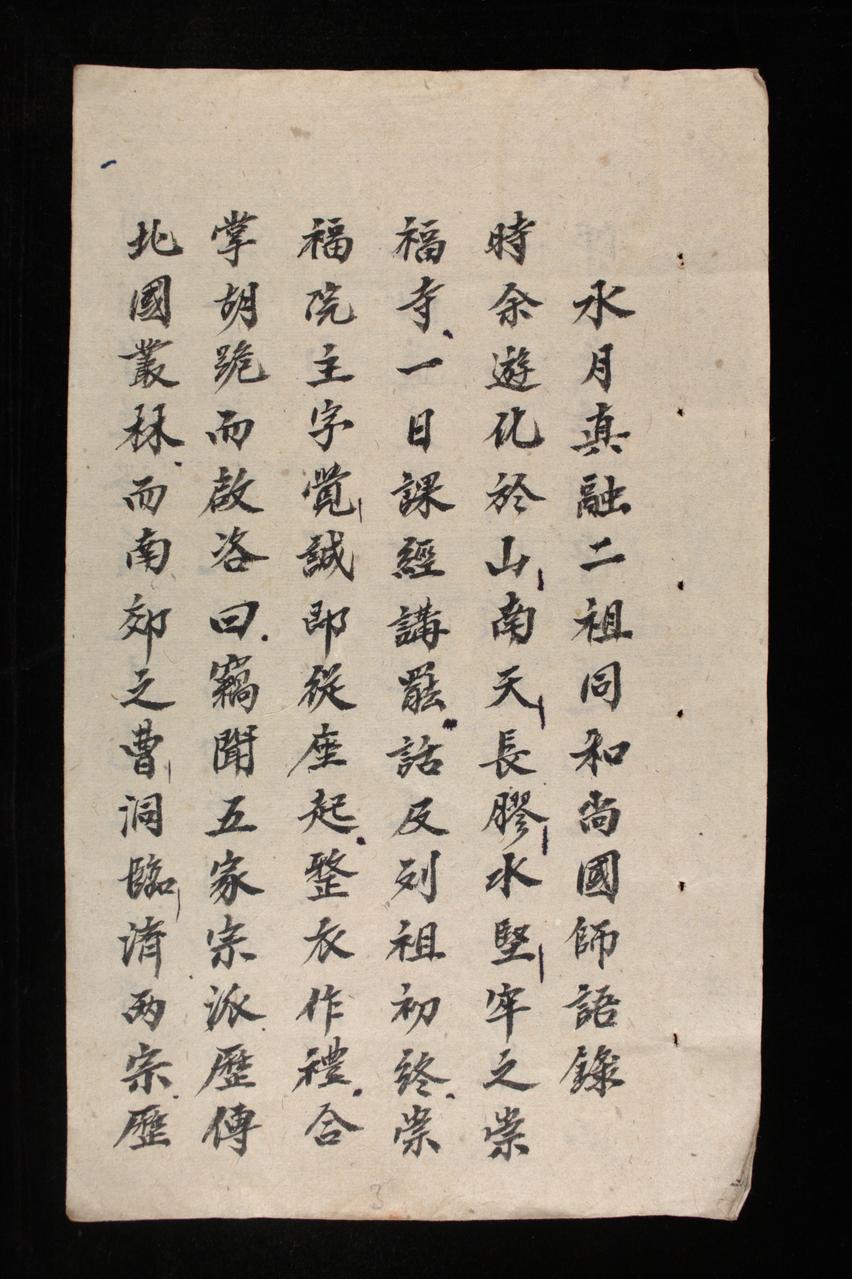 水月真融二祖同和尚國師語錄
時余遊化於山南天長膠水堅牢之崇
福寺一日課經講罷話及列祖初終崇
福院主字覺誠即從座起整衣作禮合
掌胡跪而啟咨曰竊聞五家宗派歷傳
北國叢林而南郊之曹洞臨濟兩宗歷
3